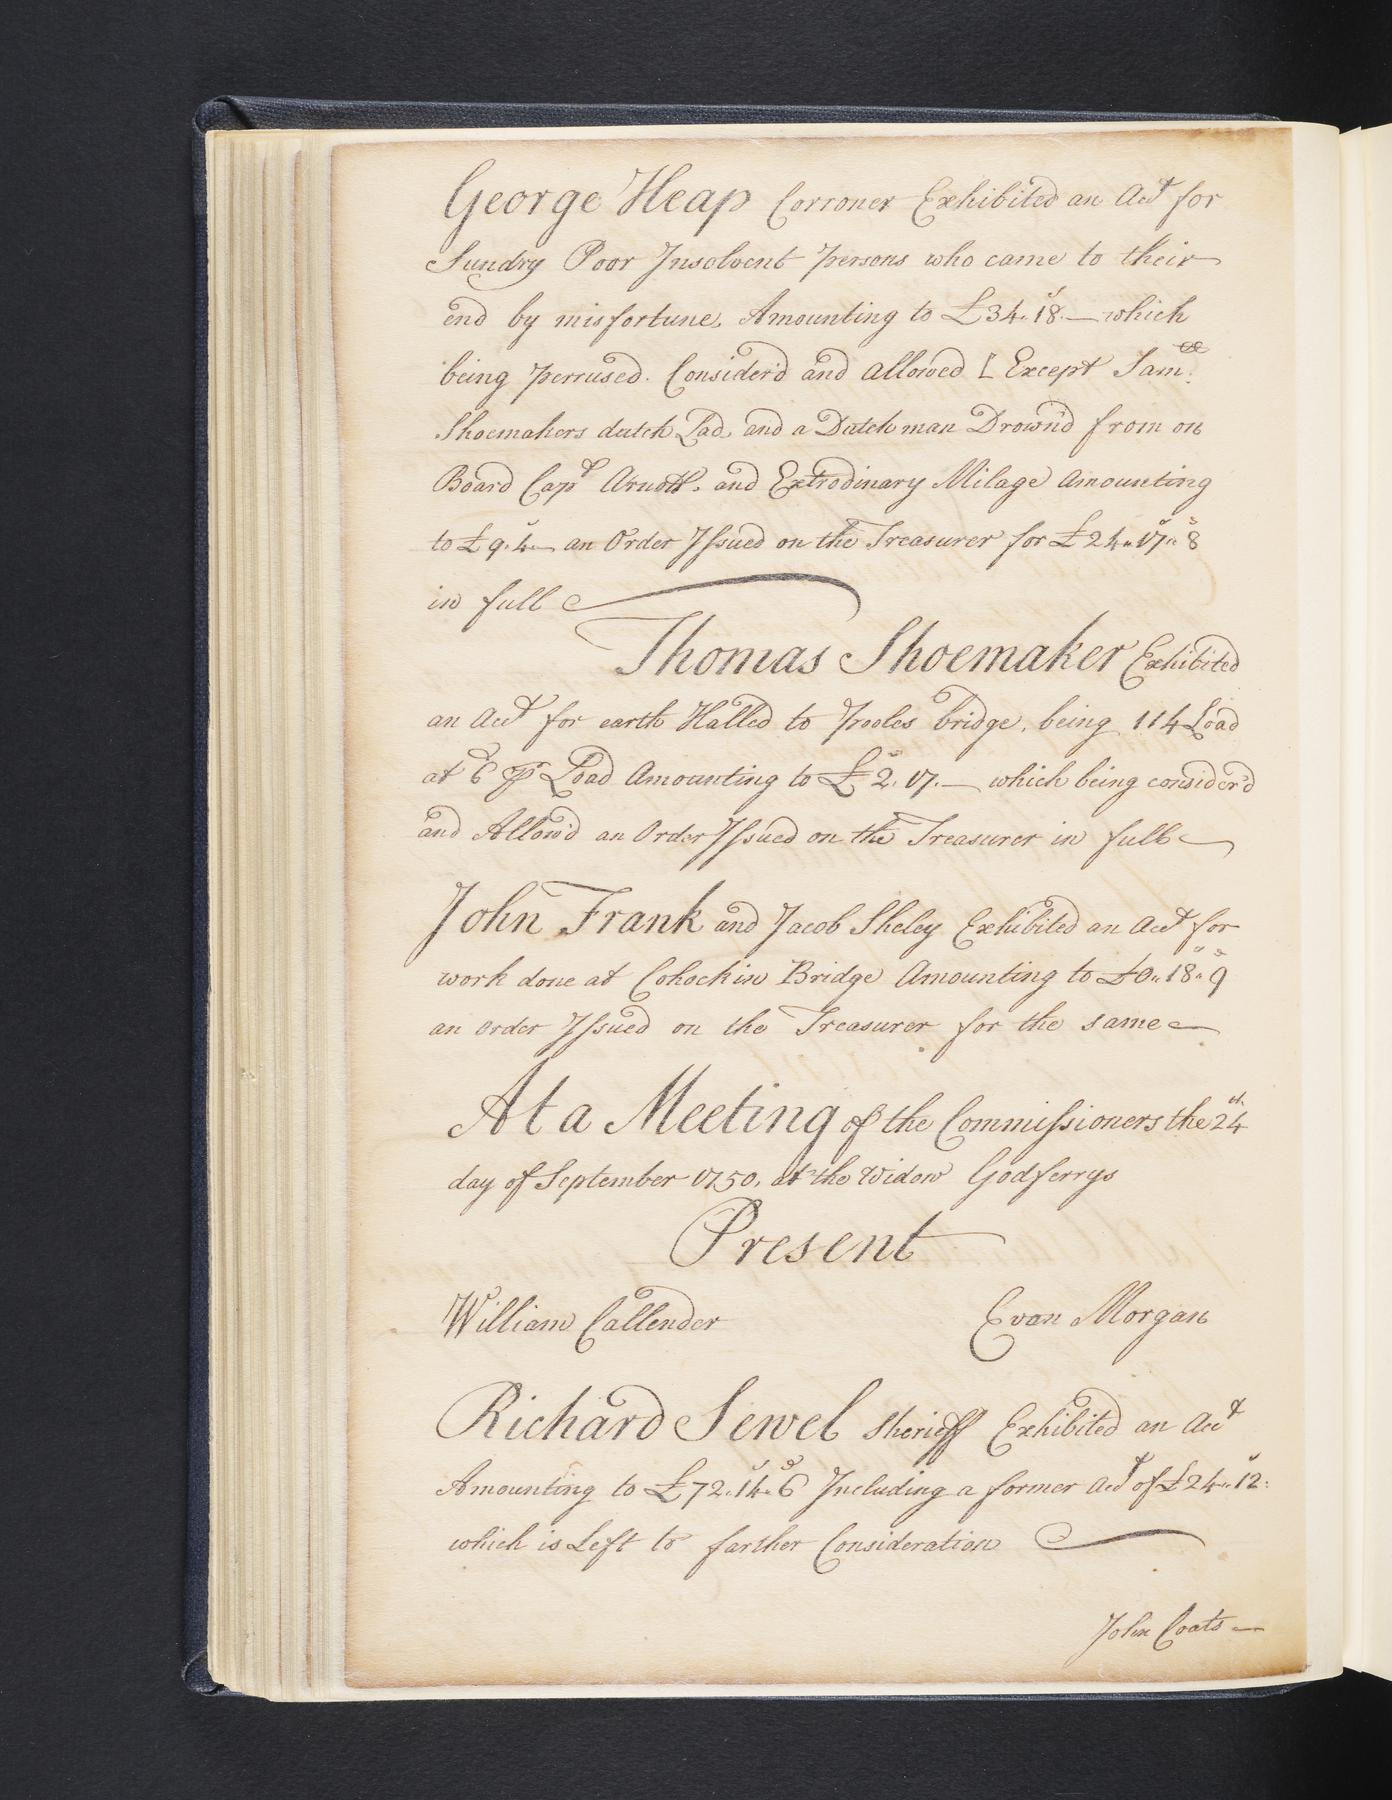 George Heap Corroner Exhibited an Acct for
Sundry Poor Insolvent persons who came to their
end by misfortune, Amounting to £34.18.— which
being perrused. Consider'd and allowed [ Except Samll.
Shoemakers dutch Lad, and a Dutch man Drown'd from on
Board Capt Arnott. and Extrodinary Milage amounting
to £9.4— an Order Issued on the Treasurer for £24..17..8
in full
Thomas Shoemaker Exhibited
an Acct for earth Halled to pooles bridge, being 114 Load
at 6d ⅌ Load Amounting to £2.17.— which being consider'd
and Allow'd an Order Issued on the Treasurer in full
John Frank and Jacob Sheley Exhibited an Acct for
work done at Cohockin Bridge Amounting to £0..18..9
an order Issued on the Treasurer for the same
At a Meeting of the Commissioners the 24th
day of September 1750, at the Widow Godferrys
Present
William Callender Evan Morgan
Richard Sewel Sherieff Exhibited an Acct
Amounting to £72.14.6 Including a former Acct of £24..12:
which is Left to farther Consideration
John Coats —